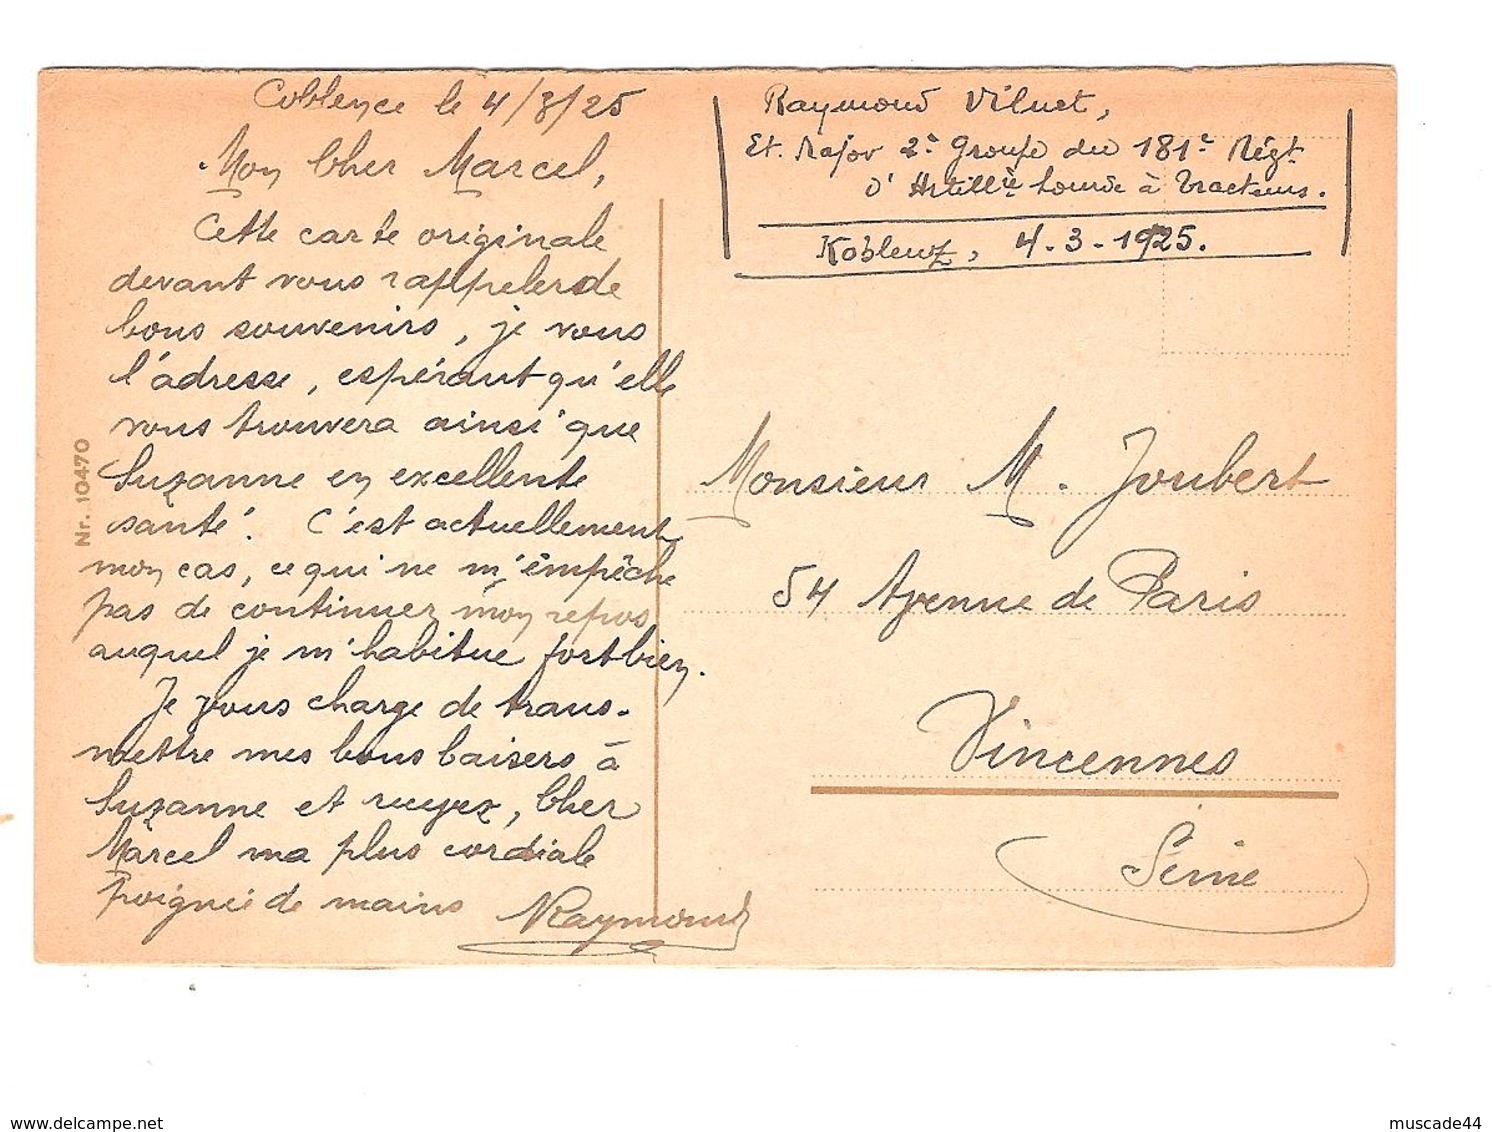 Coblence le 4/3/25
Mon Cher Marcel,
Cette carte originale
devant vous rappeler de
bons souvenirs, je vous
l'adresse, espérant qu'elle
vous trouvera ainsi que
Suzanne en excellente
santé. C'est actuellement
mon cas, ce qui ne m'empêche
pas de continuer mon repos
auquel je m'habitue fort bien.
Je vous charge de trans-
mettre mes bons baisers à
Suzanne et recevez, Cher
Marcel ma plus cordiale
poignée de mains Raymond
Nr. 10470
Raymond Viluet,
Et. Major 2e Groupe du 181e Régt
d'Artillie Lourde à Tracteurs.
Koblenz, 4-3-1925.
Monsieur M. Joubert
54 Avenue de Paris
Vincennes
Seine
delcampe.net
muscade44